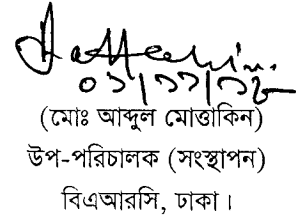 (মোঃ আব্দুল মোত্তাকিন)
উপ-পরিচালক (সংস্থাপন)
বিএআরসি, ঢাকা।